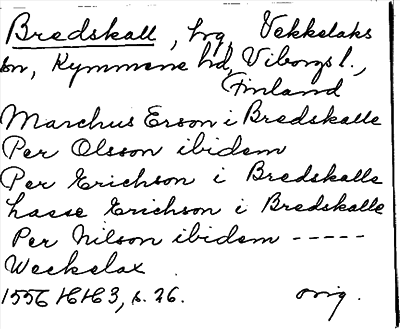 Bredskall, hrg Vekkelaks
sn, Kymmene hd, Viborgs l.,
Finland
Marchus Erson i Bredskalle
Per Olsson ibidem
Per Erichson i Bredskalle
Lasse Erichson i Bredskalle
Per Nilson ibidem -----
Weckelax
1556 HH3, s. 26. orig.